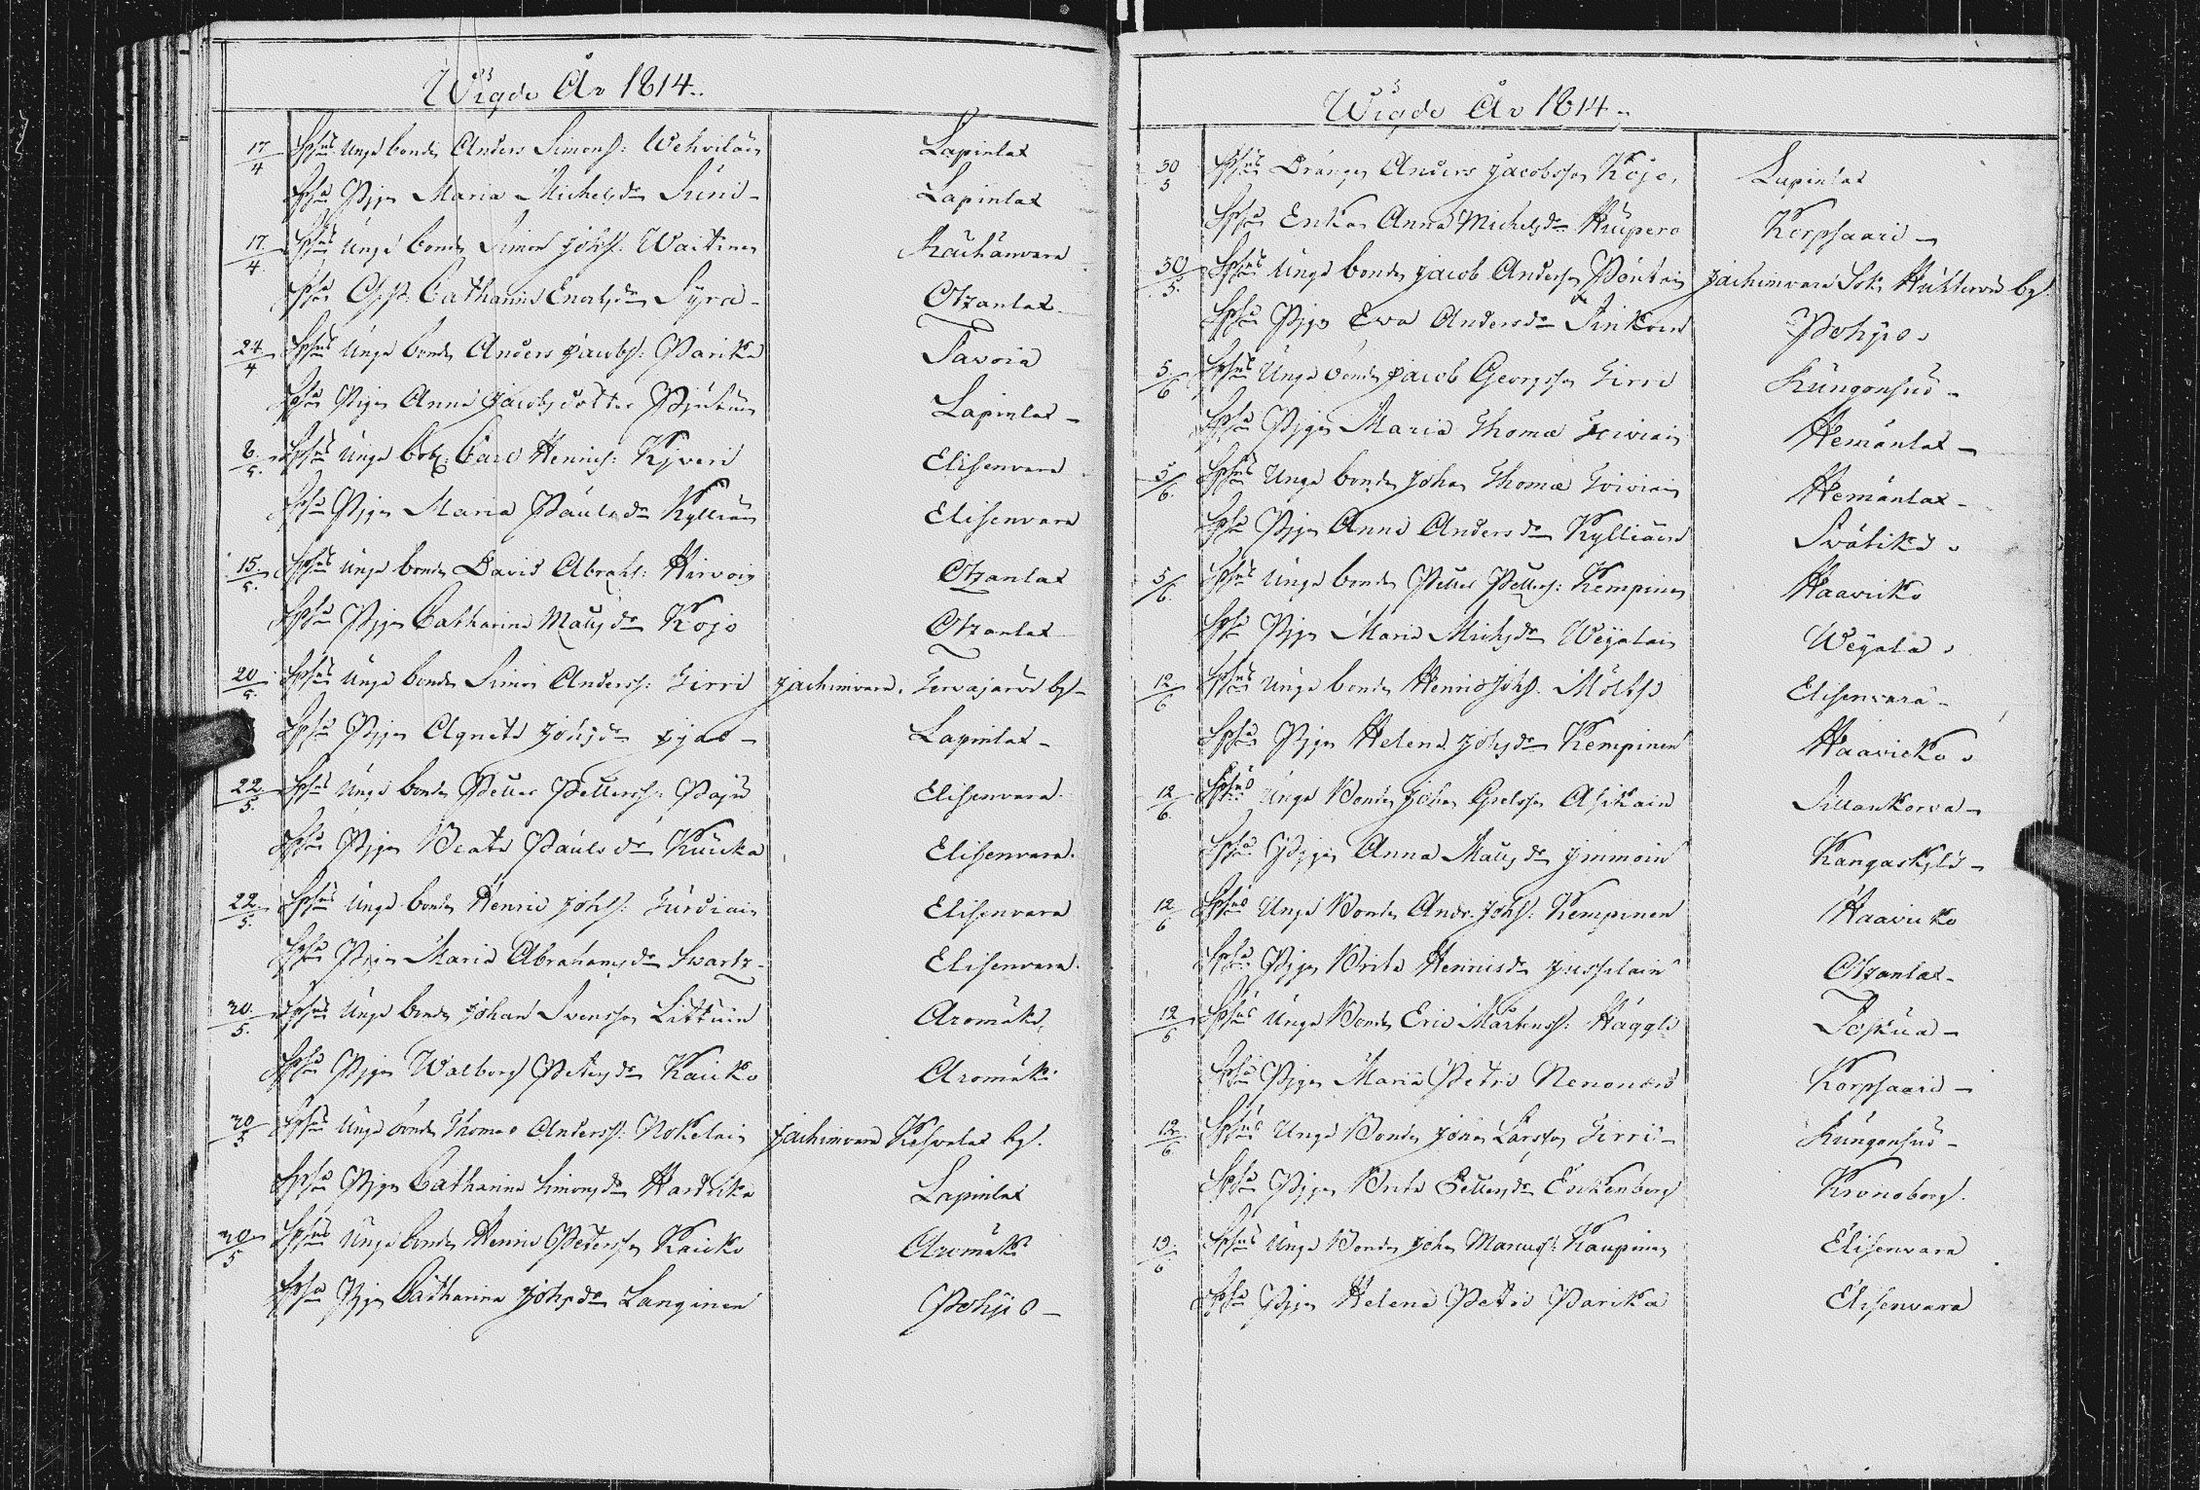 Wigde År 1814.
17/4 Spsus Unge bonden Anders Simonss: Wehviläin Lapinlax
Spsa Pigan Maria Michelsdr Suni - Lapinlax
17/4 Spsus Unge bonden Simon Johss: Waitinen Rauhanvara
Spsa Catharina Enochsdr Syrä - Otzanlax
24/4 Spsus Unge bonden Anders Jacobss: Parika Tavoia
Spsa Pigan Anna Jacobsdotter Lapinlax -
Spsus Unge Carl Henricss: Kiveri Elisenvara
Spsa Pigan Maria Paulsdr Kylliäin Elisenvara
15/5 Spsus Unge bonden David Abrahss: Hirvoin Otzanlax
Spsa Pigan Catharina Matsdr Kojo Otzanlax
20/5 Spsus Unge bonden Simon Anderss: Tirri Jachimvara, Tervajärvi by -
Spsa Pigan Agneta Johsdr Lapinlax -
22/5 Spsus Unge bonden Petter Petterss: Paju Elisenvara.
Spsa Pigan Beata Paulsdr Kuicka Elisenvara.
22/5 Spsus Unge bonden Henric Johss: Turdiain Elisenvara
Spsa Pigan Maria Abrahamsdr Swartz - Elisenvara.
30/5 Spsus Unge bonden Johan Svensson Littuin Aromäki,
Spsa Pigan Walborg Petersdr Kaicko Aromäki
30/5 Spsus Unge bonden Thomas Anderss: Nokelain Jachimvara Kesvalax by.
Spsa Pigan Catharina Simonsdr Hartika Lapinlax
30/5 Spsus Unge bonden Henric Petersson Kaicko Aromäki
Spsa Pigan Catharina Johsdr Langinen Pohjio -
Wigde År 1814.
30/5 Spsus Drängen Anders Jacobsson Kojo, Lapinlax
Spsa Enkan Anna Michelsdr Huipero Korpsaari -
30/5 Spsus Unge bonden Jacob Andersson Jachimvara Sokn Huhtervu by.
Spsa Pigan Eva Andersdr Sinkoin Pohjio.
5/6 Spsus Unge bonden Jacob Georgsson Tirri Kungonsuo -
Spsa Pigan Maria Thomæ Toiviain Hemänlax -
5/6 Spsus Unge bonden Johan Thomæ Toiviain Hemänlax -
Spsa Pigan Anna Andersdr Kylliäin Svätikä.
5/6 Spsus Unge bonden Petter Petterss: Kempinen Haavicko
Spsa Pigan Maria Michsdr Weijalain Weijala.
12/6 Spsus Unge bonden Henric Johss: Möltsi Elisenvara -
Spsa Pigan Helena Johsdr Kempinen Haavicko.
12/6 Spsus Unge Bonden Johan Asikain Sillankorva -
Spsa Pigan Anna Matsdr Immoin Kangaskylä -
12/6 Spsus Unge Bonden Andr: Johss: Kempinen Haavicko
Spsa Pigan Brita Henricsdr Jusselain Otzanlax -
12/6 Spsus Unge Bonden Eric Mårtenss: Häggli Joskua -
Spsa Pigan Maria Petri Nenonen Korpsaari -
12/6 Spsus Unge Bonden Johan Larsson Tirri - Kungonsuo -
Spsa Pigan Brita Pettersdr Enckenberg Kronoborg.
12/6 Spsus Unge Bonden Johan Marcuss: Kaupinen Elisenvara
Spsa Pigan Helena Petri Parika Elisenvara